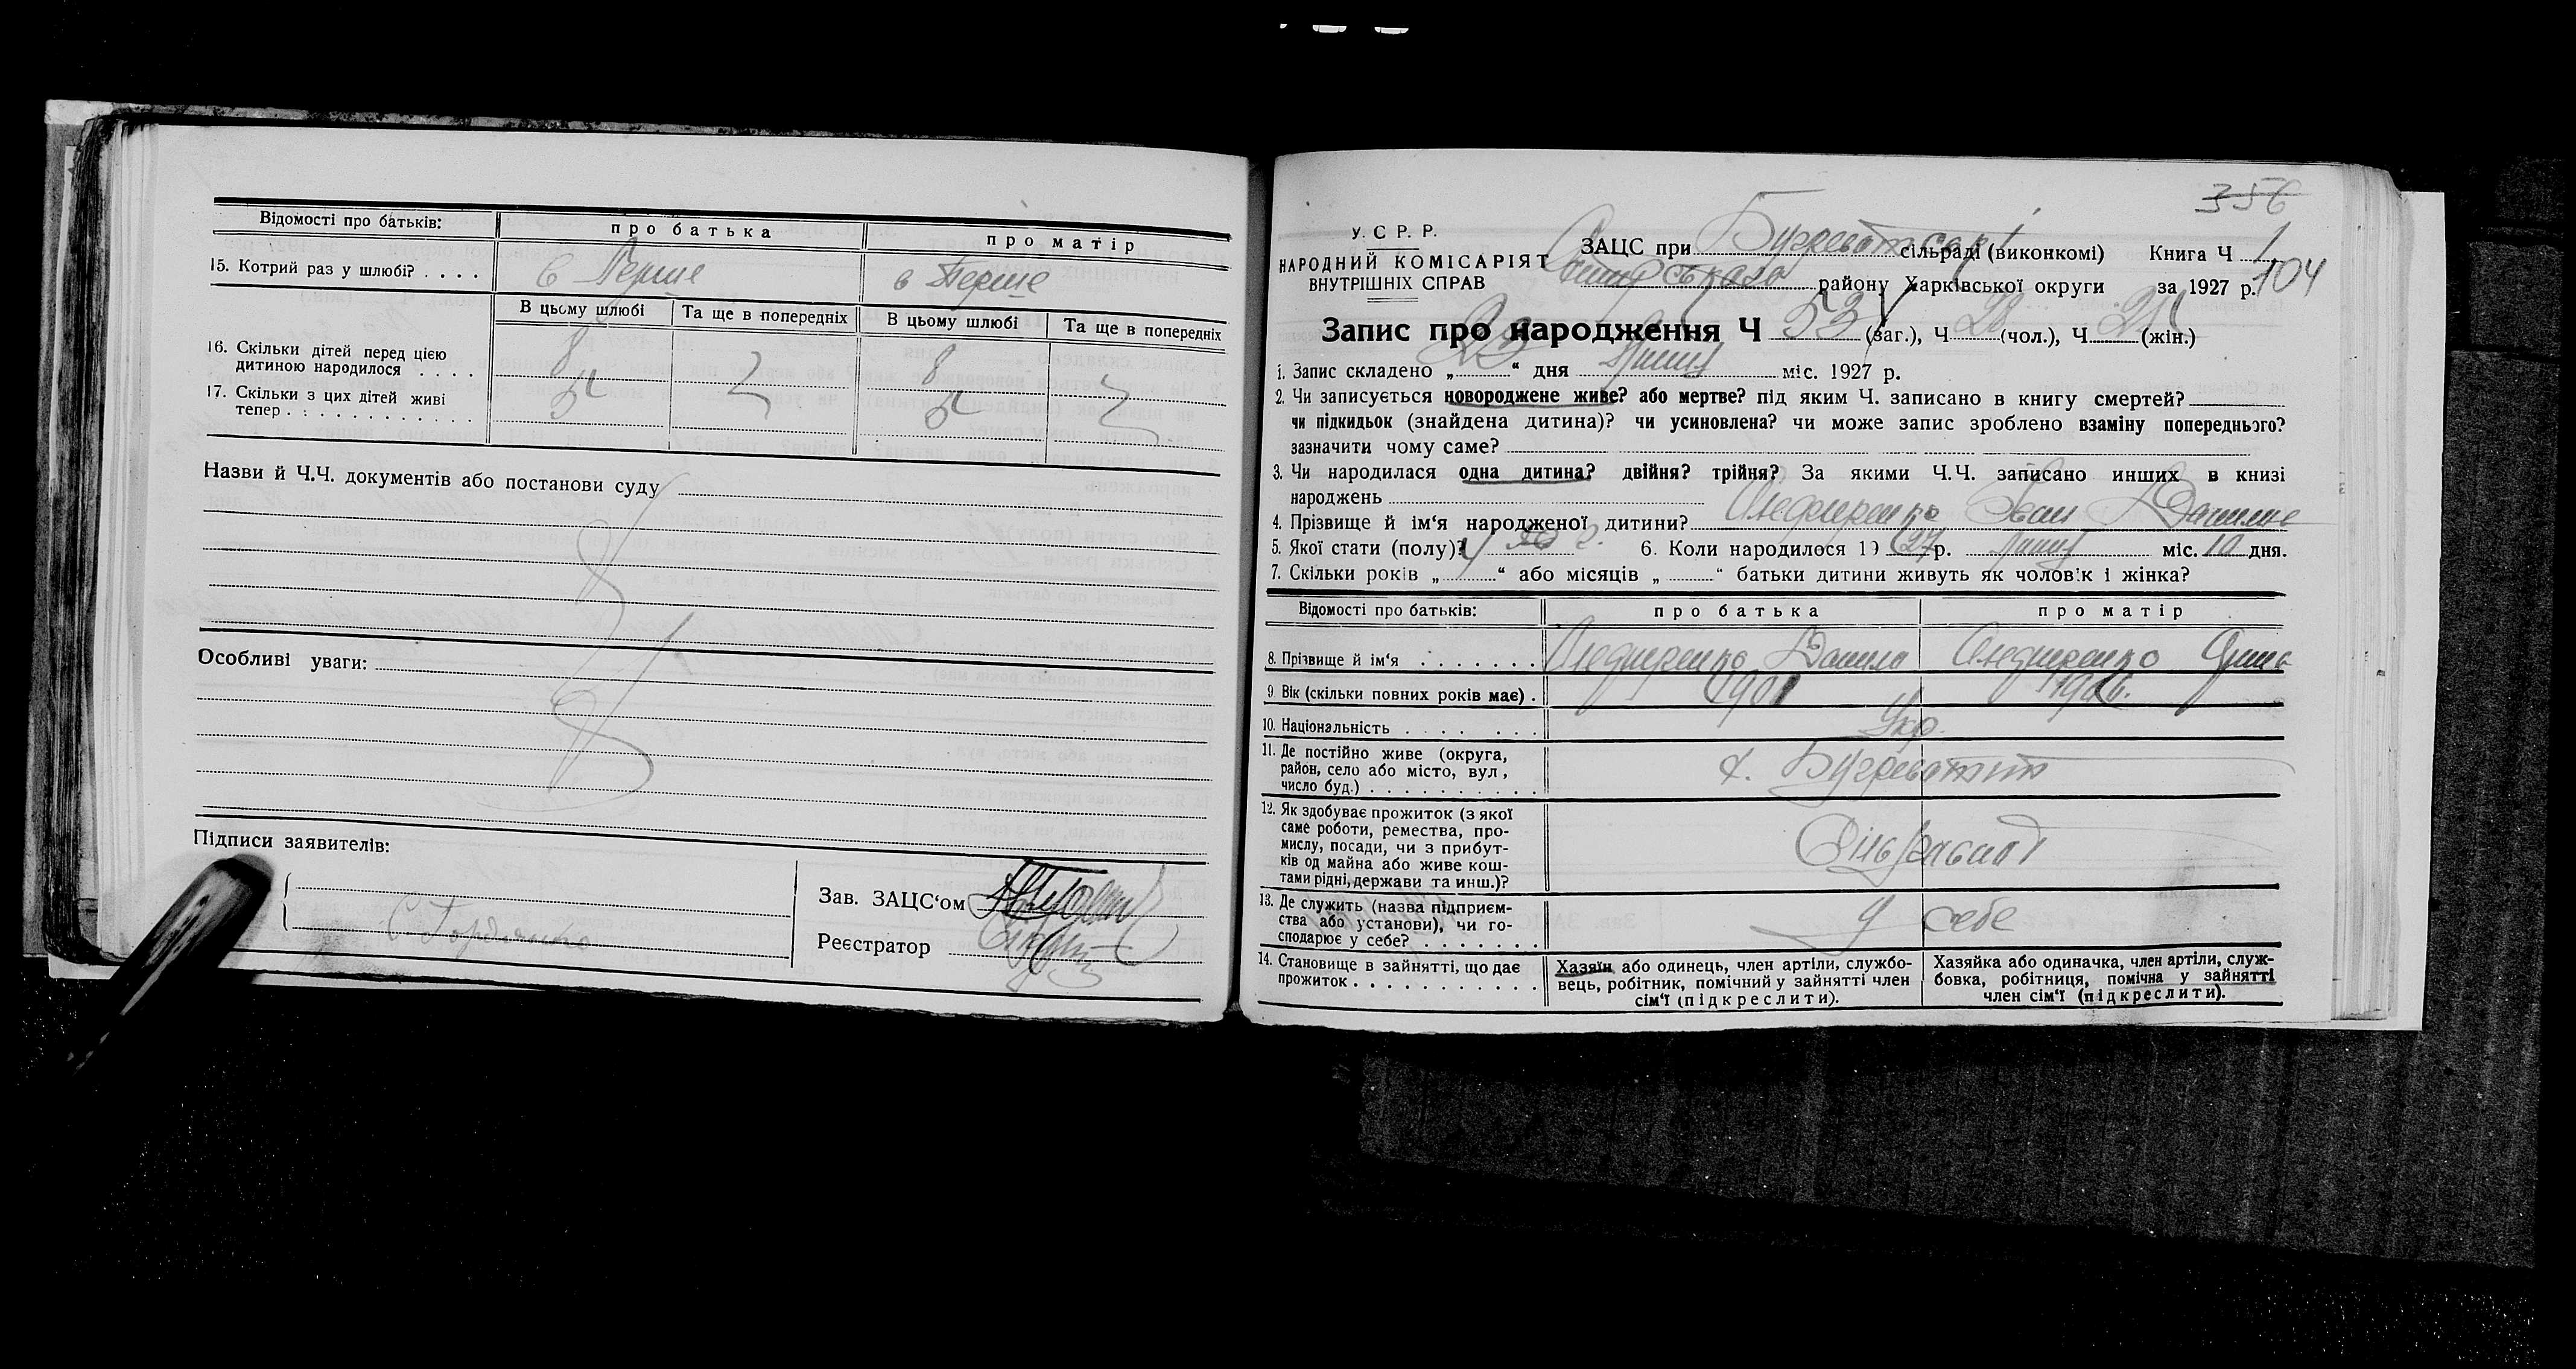 Відомості про батьків: про батька про матір
15. Котрий раз у шлюбі? . . . . в Перше в Перше
В цьому шлюбі Та ще в попередніх В цьому шлюбі Та ще в попередніх
16. Скільки дітей перед цією
дитиною народилося . . . . 8 8
17. Скільки з цих дітей живі
тепер . . . . . . . . . .
Назви й Ч.Ч. документів або постанови суду
Особливі уваги:
Підписи заявителів:
Зав. ЗАЦС‘ом
Реєстратор
356
У.С Р. Р.
НАРОДНИЙ КОМІСАРІЯТ
ВНУТРІШНІХ СПРАВ
ЗАЦС при сільраді (виконкомі) Книга Ч 1
району Харківської округи за 1927 р. 104
Запис про народження Ч 53 (заг.), Ч (чол.), Ч (жін.)
1. Запис складено „ 23 “ дня Липня міс. 1927 р.
2. Чи записується новороджене живе? або мертве? під яким Ч. записано в книгу смертей?
чи підкидьок (знайдена дитина)? чи усиновлена? чи може запис зроблено взаміну попереднього?
зазначити чому саме?
3. Чи народилася одна дитина? двійня? трійня? За якими Ч.Ч. записано инших в книзі
народжень
4. Прізвище й ім‘я народженої дитини? Олефиренко Іван
5. Якої стати (полу)? Ч 6. Коли народилося 1927 р. Липня міс. 10 дня.
7. Скільки років „ “ або місяців „ “ батьки дитини живуть як чоловік і жінка?
Відомості про батьків: про батька про матір
8. Прізвище й ім‘я . . . . . . . Олефиренко Данило Олефиренко
9. Вік (скільки повних років має) . 1901
10. Національність . . . . . . . Укр.
11. Де постійно живе (округа,
район, село або місто, вул,
число буд.) . . . . . . . . . х.
12. Як здобуває прожиток (з якої
саме роботи, ремества, про-
мислу, посади, чи з прибут-
ків од майна або живе кош-
тами рідні, держави та инш.)?
13. Де служить (назва підприєм-
ства або установи), чи го-
сподарює у себе? . . . . . . . У себе
14. Становище в зайнятті, що дає
прожиток . . . . . . . . . . .
Хазяїн або одинець, член артіли, службо-
вець, робітник, помічний у зайнятті член
сім‘ї (підкреслити).
Хазяйка або одиначка, член артіли, служ-
бовка, робітниця, помічна у зайнятті
член сім‘ї (підкреслити).